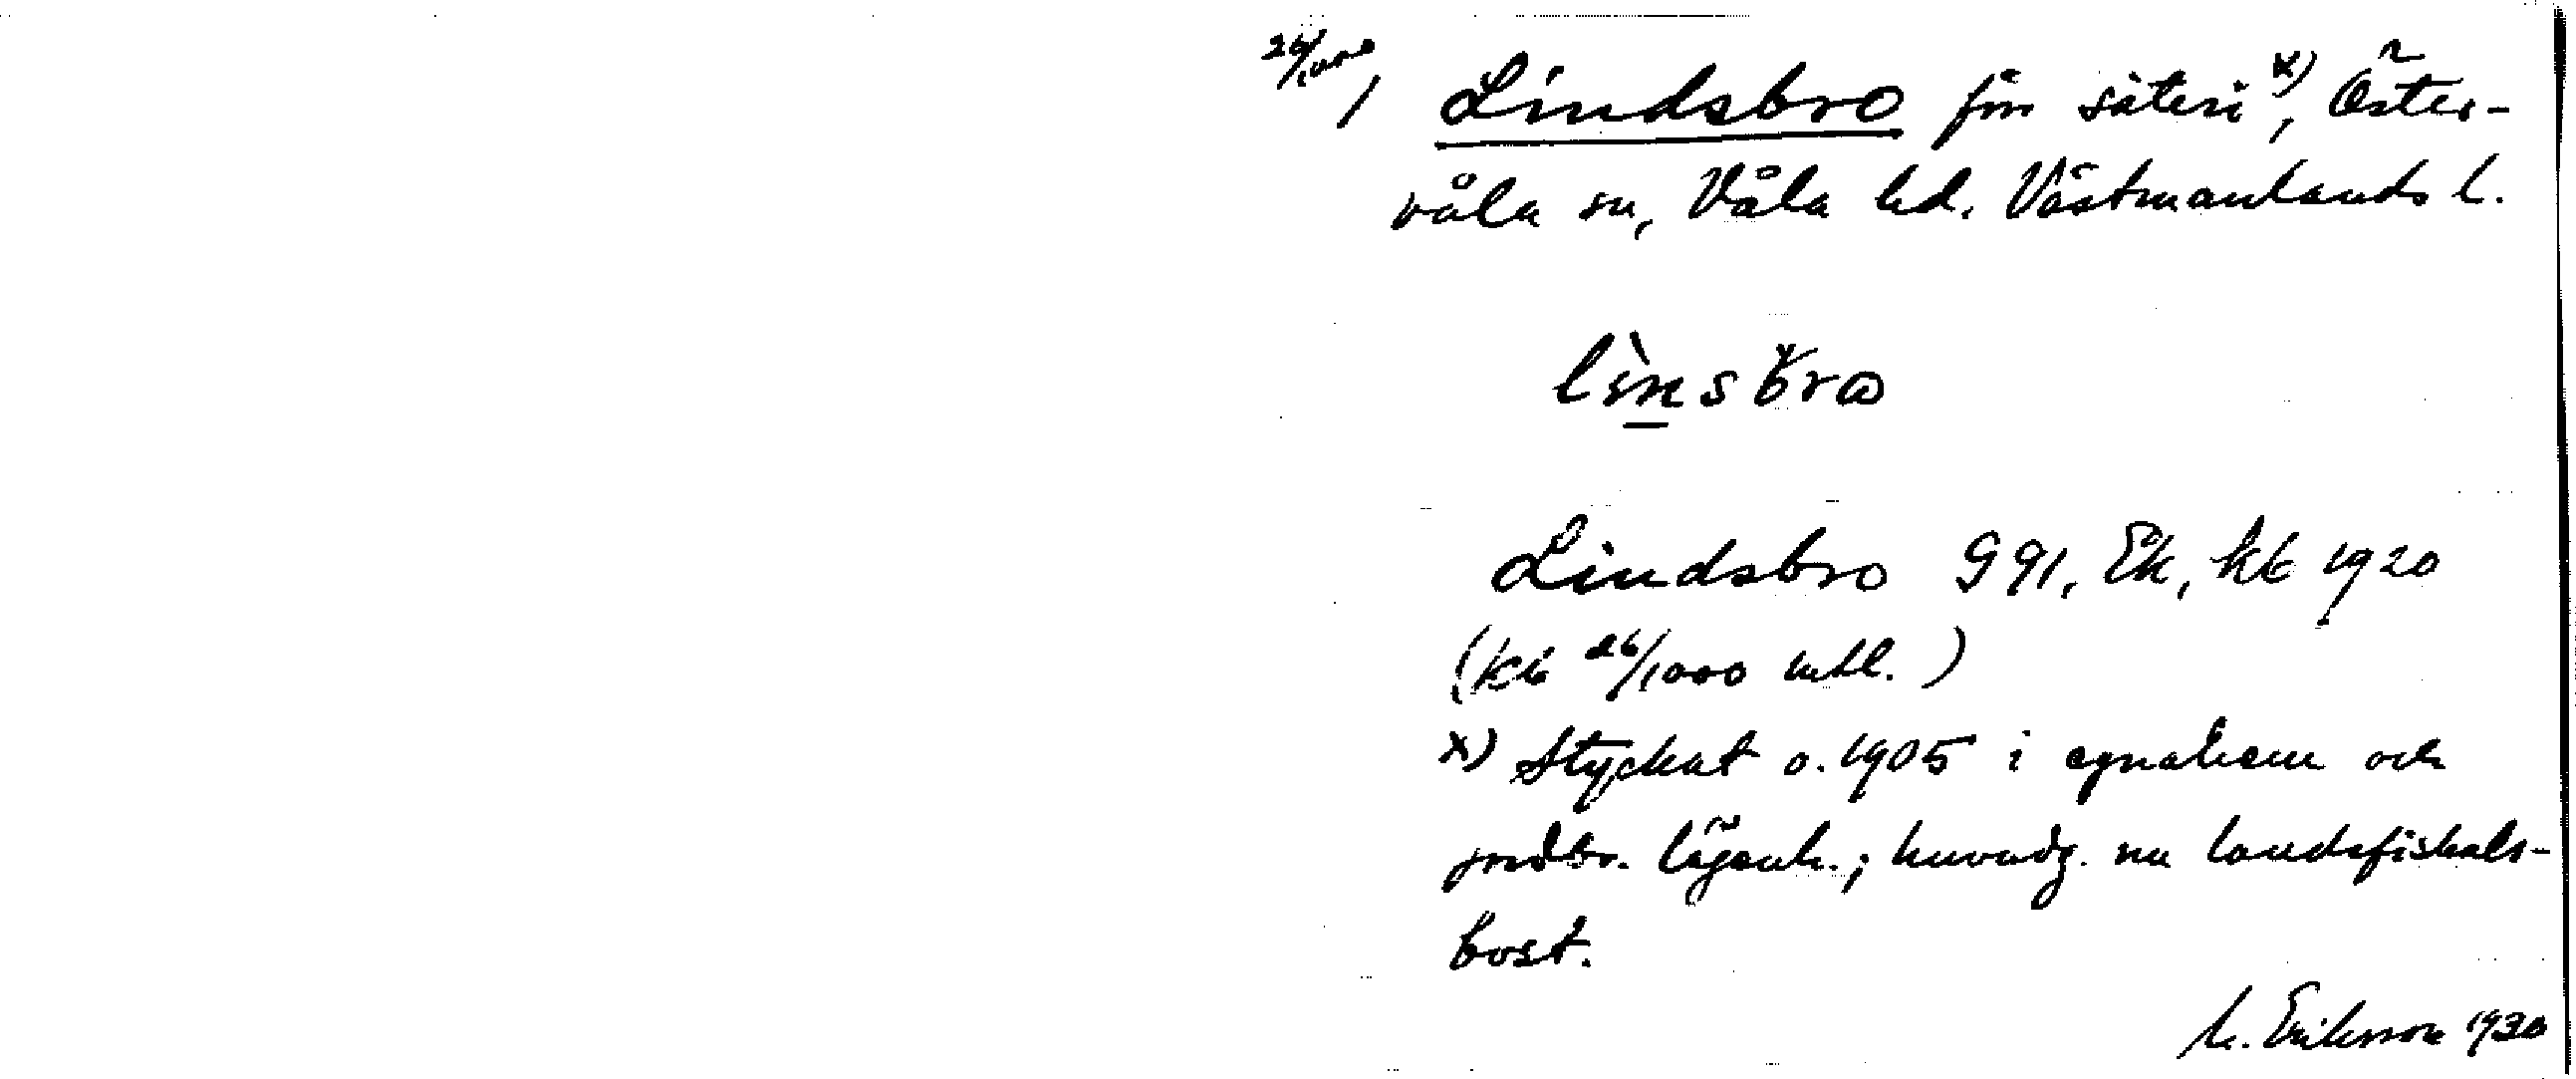 26/1000 / Lindsbro förr säteri x), Öster-
våla sn, Våla hd. Västmanlands l.
lìnsbro
Lindsbro G 91, Ek, kb 1920
(kb 26/1000 mtl.)
x) Styckat o. 1905 i egnahem och
jordbr. lägenh.; huvudg. nu landsfiskals-
bost.
M. Eriksson 1930